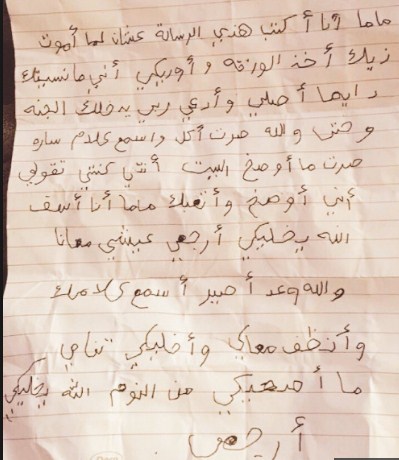 ماما أنا أكتب هذي الرسالة عشان لما أموت
زيك أخذ الورقه وأوريكي أني مانسيتك
دايما أصلي وأدعي ربي يدخلك الجنه
وحتى والله صرت أكل واسمع كلام ساره
صرت ما أوصخ البيت أنتي كنتي تقولي
أني أوصخ وأتعبك ماما أنا أسف
الله يخليكي أرجعي عيشي معانا
والله وعد أصير أسمع كلامك
وأنظف معاكي وأخليكي تنامي
ما أصحيكي من النوم الله يخليكي
أرجعي